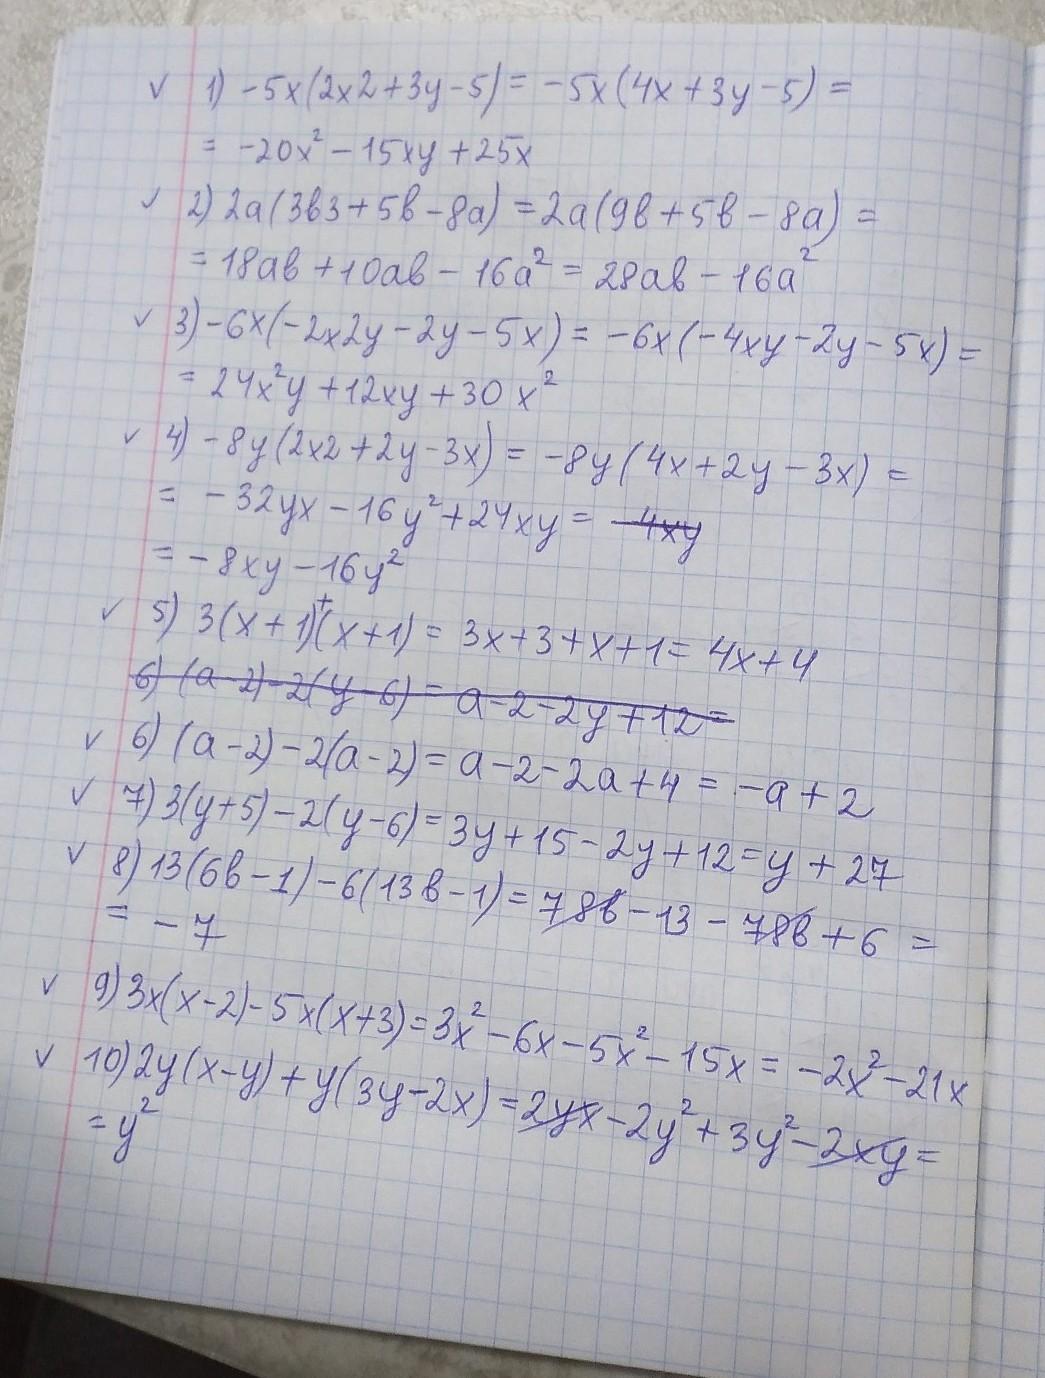 ✓ 1) -5x(2x2+3y-5) = -5x(4x+3y-5) =
= -20x² - 15xy + 25x
✓ 2) 2a(3в3+5в-8a) = 2a(9в+5в-8a) =
= 18aв + 10aв - 16a² = 28aв - 16a²
✓ 3) -6x(-2x2y-2y-5x) = -6x(-4xy-2y-5x) =
= 24x²y + 12xy + 30x²
✓ 4) -8y(2x2+2y-3x) = -8y(4x+2y-3x) =
= -32yx - 16y² + 24xy = -4xy
= -8xy - 16y²
✓ 5) 3(x+1)+(x+1) = 3x+3+x+1 = 4x+4
6) (a-2)-2(y-6) = a-2-2y+12 =
✓ 6) (a-2)-2(a-2) = a-2-2a+4 = -a+2
✓ 7) 3(y+5)-2(y-6) = 3y+15-2y+12 = y+27
✓ 8) 13(6в-1)-6(13в-1) = 78в-13-78в+6 =
= -7
✓ 9) 3x(x-2)-5x(x+3) = 3x²-6x-5x²-15x = -2x²-21x
✓ 10) 2y(x-y)+y(3y-2x) = 2yx-2y²+3y²-2xy =
= y²